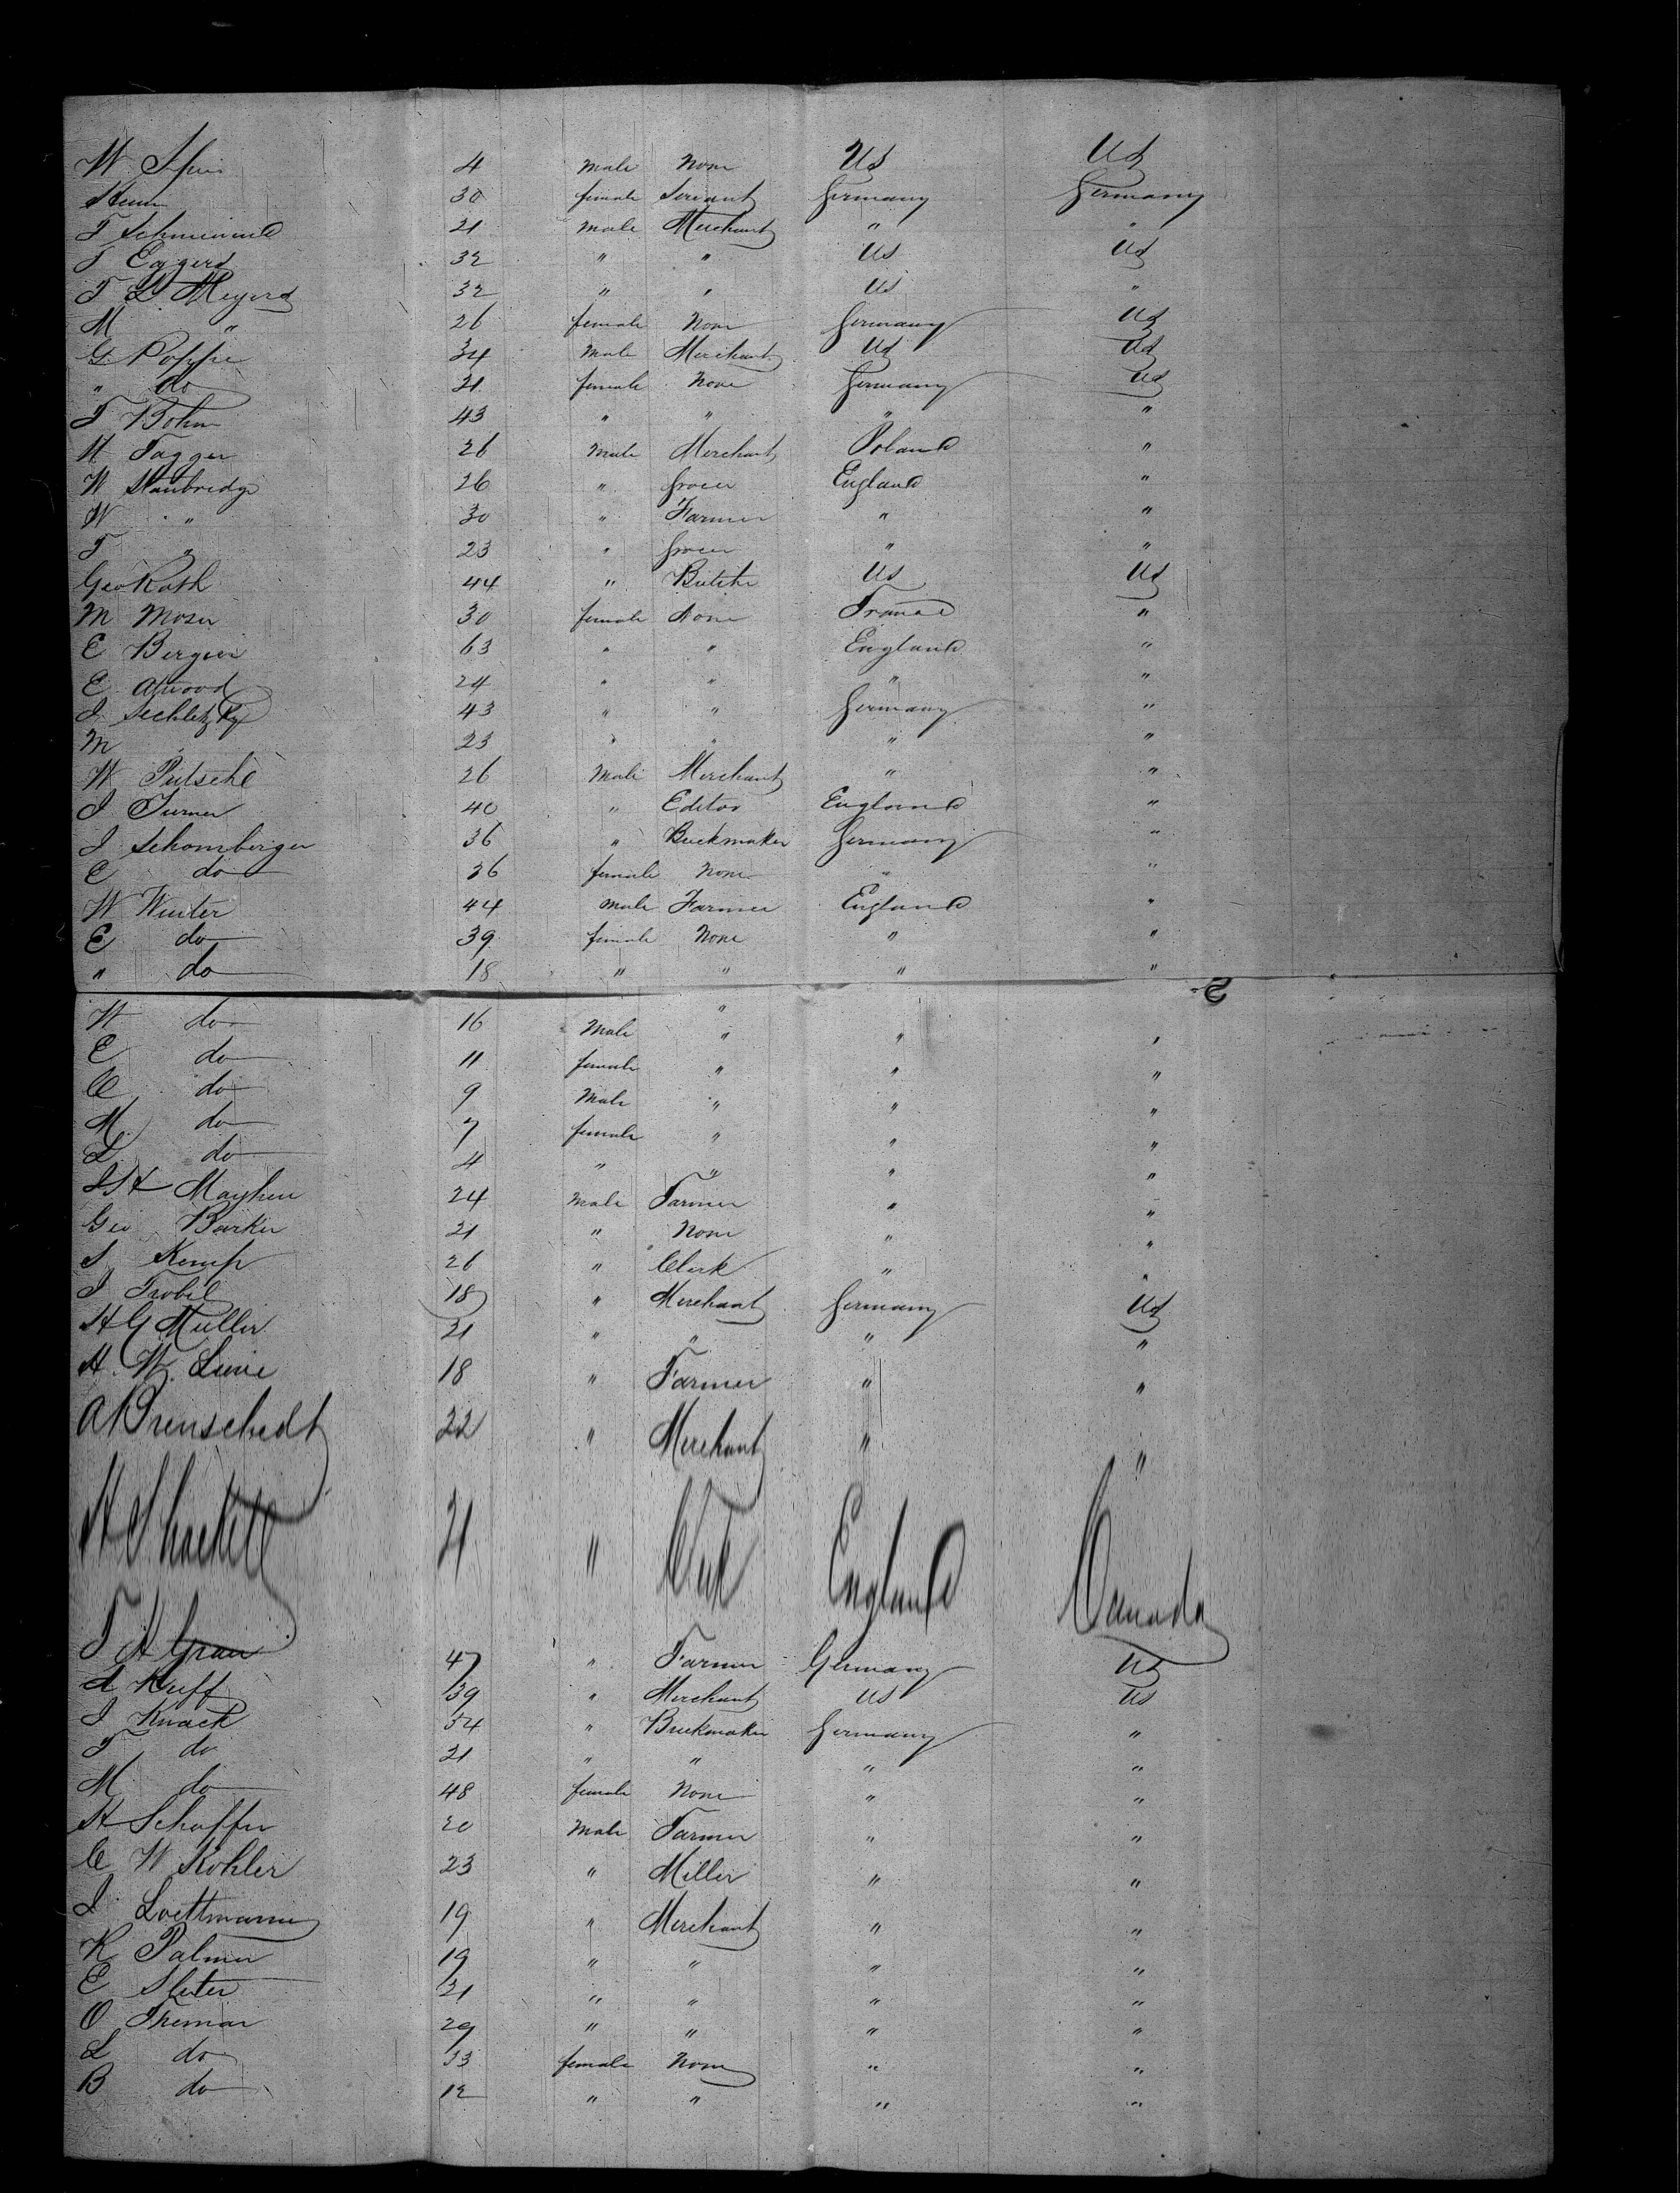 W 4 male None US US
30 female Servant Germany Germany
T 21 male Merchant " "
T Eggers 32 " " US US
T L Meyers 32 " " US "
M " 26 female None Germany US
G Poppe 34 Male Merchant US US
" do 21 female None Germany US
T Bohm 43 " " " "
H Tagger 26 Male Merchant Poland "
W Stanbridge 26 " Grocer England "
W " 30 " Farmer " "
T " 23 " Grocer " "
Geo Roth 44 " US US
M Moser 30 female None France "
E 63 " " England "
E Atwood 24 " " " "
43 " " Germany "
M " 23 " " " "
W 26 Male Merchant " "
J Turner 40 " Editor England "
J Schomberger 36 " Germany "
E do 36 female None " "
W Winter 44 male Farmer England "
E do 39 female None " "
" do 18 " " " "
W do 16 Male " " "
E do 11 female " " "
C do 9 Male " " "
M do 7 female " " "
L do 4 " " " "
Mayhew 24 Male Farmer " "
Geo Barker 21 " None " "
S Kemp 26 " Clerk " "
J 18 " Merchant Germany US
H G Muller 21 " " " "
H. W. 18 " Farmer " "
22 " Merchant " "
H 21 " England Canada
T H Grau 47 " Farmer Germany US
Ruff 39 " Merchant US US
J Knack 54 " Germany "
T do 21 " " " "
M do 48 female None " "
H Schaffer 20 Male Farmer " "
C W Kohler 23 " Miller " "
J 19 " Merchant " "
K Palmer 19 " " " "
E 21 " " " "
O 29 " " " "
L do 33 female None " "
B do 12 " " " "